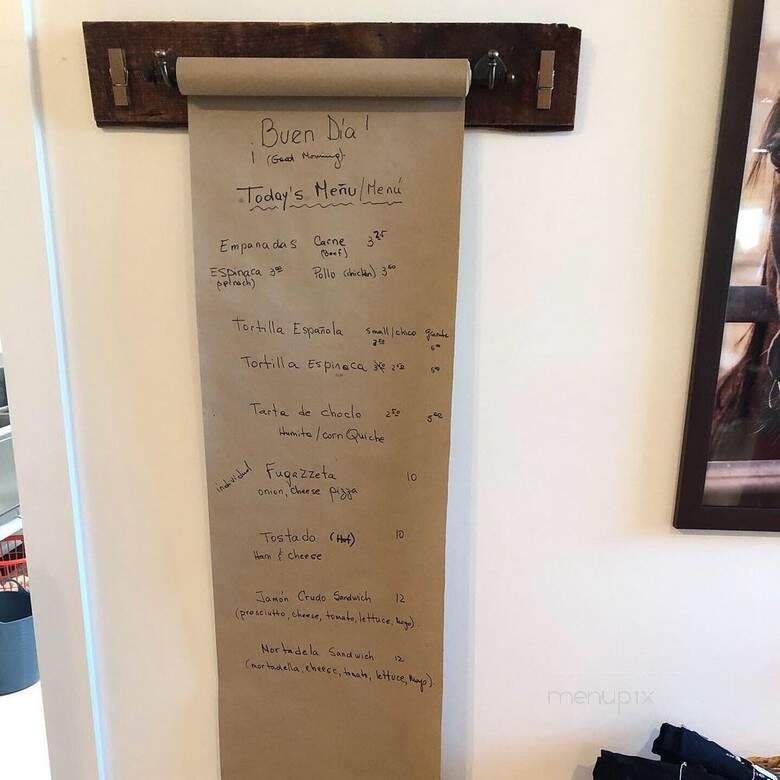 ¡Buen Día!
(Good Morning)
Today's Meñu/Menú
Empanadas Carne 3.25
(Beef)
Espinaca 3.00 Pollo (chicken) 3.00
(spinach)
Tortilla Española small/chico grande
2.50 5.00
Tortilla Espinaca 2.50 5.00
Tarta de choclo 2.50 5.00
Humita/corn Quiche
individual Fugazzeta 10
onion, cheese pizza
Tostado (Hot) 10
Ham & cheese
Jamón Crudo Sandwich 12
(prosciutto, cheese, tomato, lettuce, Mayo)
Mortadela Sandwich 12
(mortadella, cheese, tomato, lettuce, Mayo)
menupix